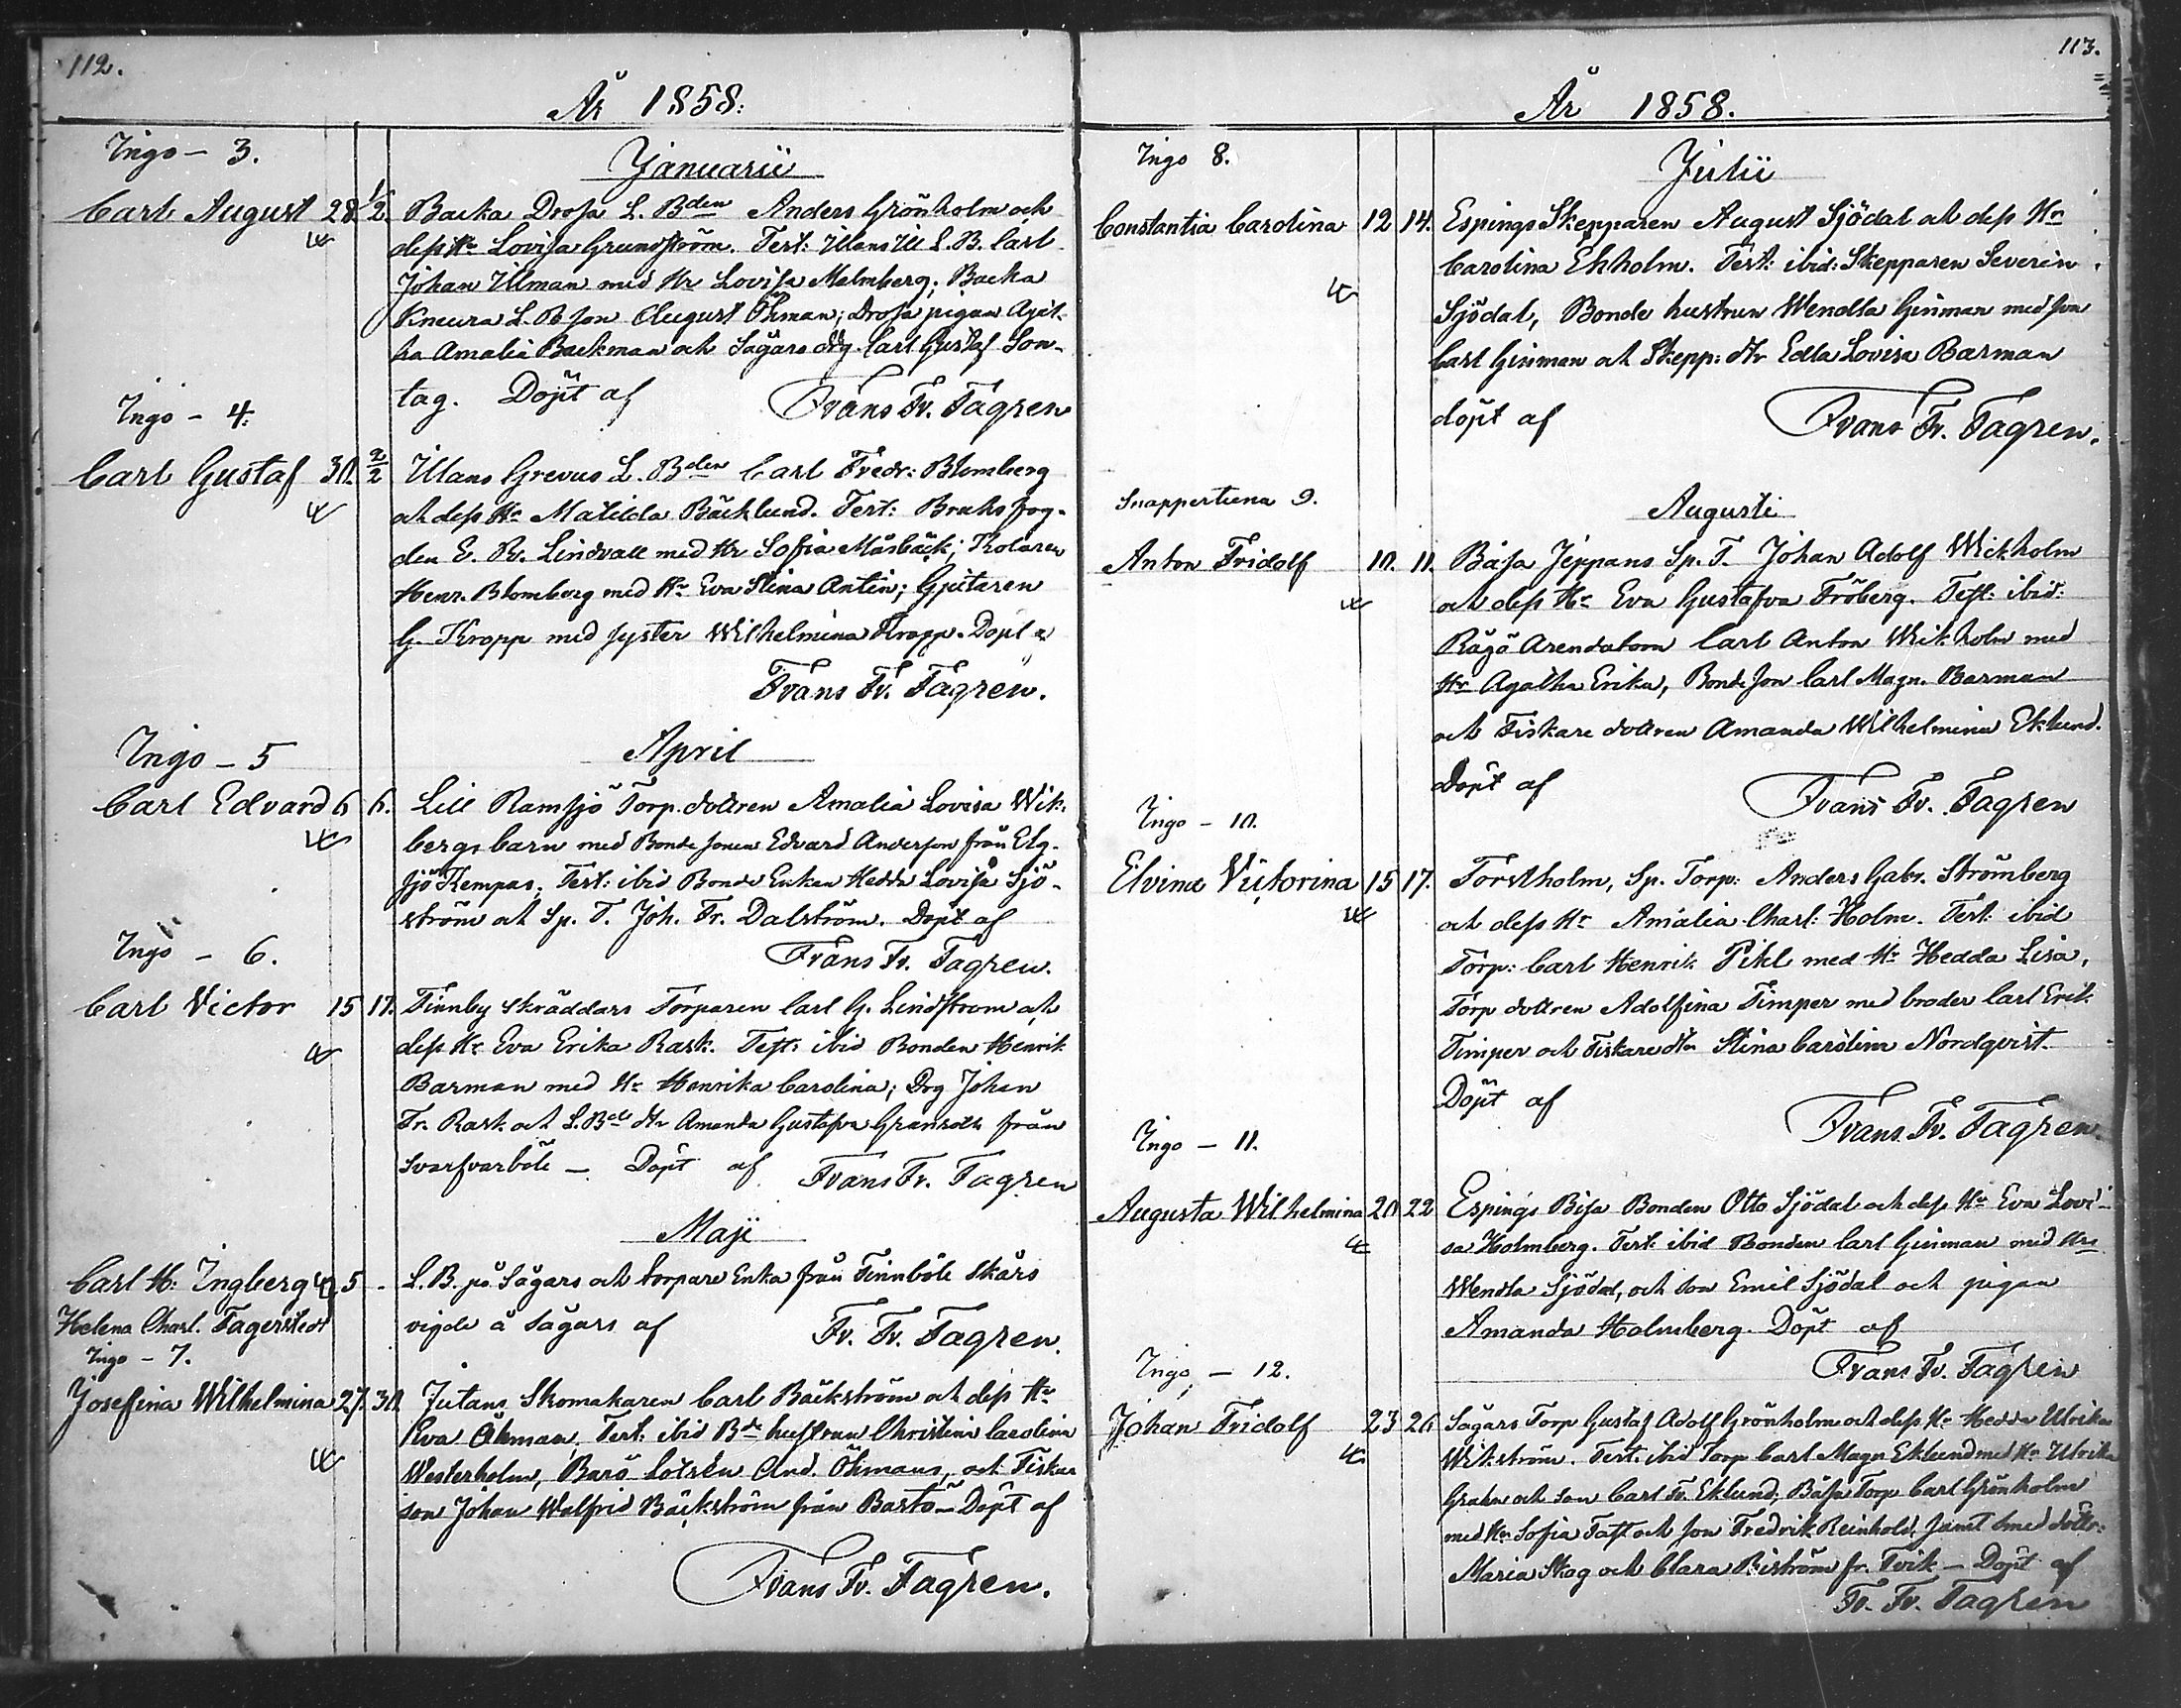 112.
År 1858.
Ingo - 3.
Januarii
Carl August 28. 1/2. Backa Drosa L. Bden Anders Grönholm och
dess Hr Lovisa Grundström. Test: L. B. Carl
Johan Ulman med Hr Lovisa Malmberg; Backa
Kneura L. B son August Öhman; Drosa pigan Agat-
ha Amalia Backman och Sågars drg. Carl Gustaf Son-
tag. Döpt af Frans Fr. Fagren
Ingo - 4.
Carl Gustaf 30. 2/2 Grevus L. Bden Carl Fredr: Blomberg
och dess Hr Matilda Bäcklund. Test: Bruksfog-
den E. R. Lindvall med Hr Sofia Måsbäck;
Henr. Blomberg med Hr Eva Stina Antin; Gjutaren
G. Kropp med syster Wilhelmina Kropp. Döpt a
Frans Fr. Fagren.
April
Ingo - 5
Carl Edvard 6 6. Lill Ramsjö Torp. dottren Amalia Lovisa Wik-
bergs barn med Bonde sonen Edvard Anderson från Elg-
sjö Kempas. Test: ibid Bonde Enkan Hedda Lovisa Sjö-
ström och Sp. T. Joh. Fr. Dalström. Döpt af
Ingo - 6.
Frans Fr. Fagren.
Carl Victor 15 17. Finnby Skräddars Torparen Carl G. Lindstrom och
dess Hr Eva Erika Rask. Test: ibid Bonden Henrik
Barman med Hr Henrika Carolina; Drg Johan
Fr. Rask och L. Bds dtr Amanda Gustafva Granroth från
Svarfvarböle - Döpt af Frans Fr. Fagren
Maji
Carl H. Ingberg 4. 5 - L. B. på Sågars och torpare Enka från Finnböle Skårs
Helena Charl. Fagerstedt
vigde å Sågars af Fr. Fr. Fagren.
Ingo - 7.
Josefina Wilhelmina 27. 30. Jutans Skomakaren Carl Bäckström och dess Hr
Eva Öhman. Test: ibid Bde hustrun Christina Carolina
Westerholm, Barö Lotsen And. Öhmans, och Fiskar
son Johan Walfrid Bäckström från Bastö - Döpt af
Frans Fr. Fagren.
113.
År 1858.
Ingo 8.
Julii
Constantia Carolina 12 14. Espings Skepparen August Sjödal och dess Hr
Carolina Ekholm. Test: ibid: Skepparen Severin
Sjödal, Bonde hustrun Wendla Ginman med son
Carl Ginman och Skepp: dtr Edla Lovisa Barman
döpt af Frans Fr. Fagren.
Snappertuna 9.
Augusti
Anton Fridolf 10. 11. Båsa Jeppans Sp. T. Johan Adolf Wickholm
och dess Hr Eva Gustafva Fröberg. Test: ibid:
Rågö Arendatorn Carl Anton Wikholm med
Hr Agatha Erika, Bonde son Carl Magn. Barman
och Fiskare dottren Amanda Wilhelmina Eklund.
Döpt af Frans Fr. Fagren
Ingo - 10.
Elvina Victorina 15 17. Torstholm, Sp. Torp: Anders Gabr. Strömberg
och dess Hr Amalia Charl: Holm. Test: ibid
Torp: Carl Henrik Pihl med Hr Hedda Lisa,
Torp dottren Adolfina Timper med broder Carl Erik
Timper och Fiskare dtr Stina Carolina Nordqvist.
Döpt af
Frans. Fr. Fagren.
Ingo - 11.
Augusta Wilhelmina 20 22 Espings Bisa Bonden Otto Sjödal och dess Hr Eva Lovi-
sa Holmberg. Test: ibid Bonden Carl Ginman med Hr
Wendla Sjödal, och son Emil Sjödal och pigan
Amanda Holmberg. Döpt af
Frans Fr. Fagren
Ingo - 12.
Johan Fridolf 23 26 Sågars Torp Gustaf Adolf Grönholm och dess Hr Hedda Ulrika
Wikström. Test: ibid Torp Carl Magn Eklund med Hr Ulrika
Grahn och son Carl Fr. Eklund; Båsa Torp Carl Grönholm
med Hr Sofia och son Fredrik Reinhold, samt smed döttr:
Maria Skog och Clara Biström fr. Frik - Döpt af
Fr. Fr. Fagren